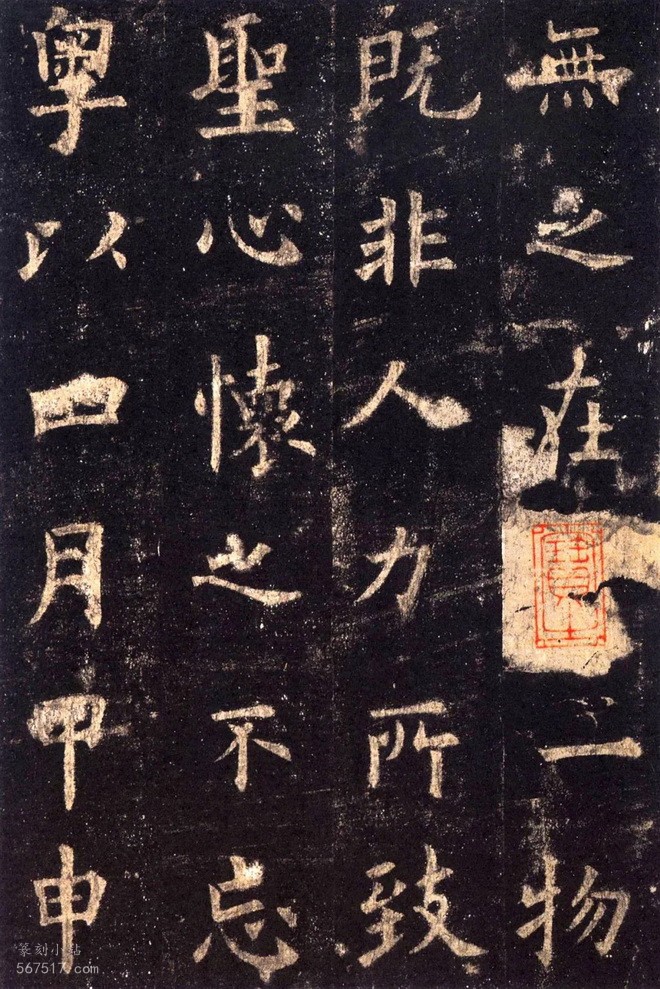 無之在一物
既非人力所致
聖心懷之不忘
粵以四月甲申
篆刻小站
567517.com